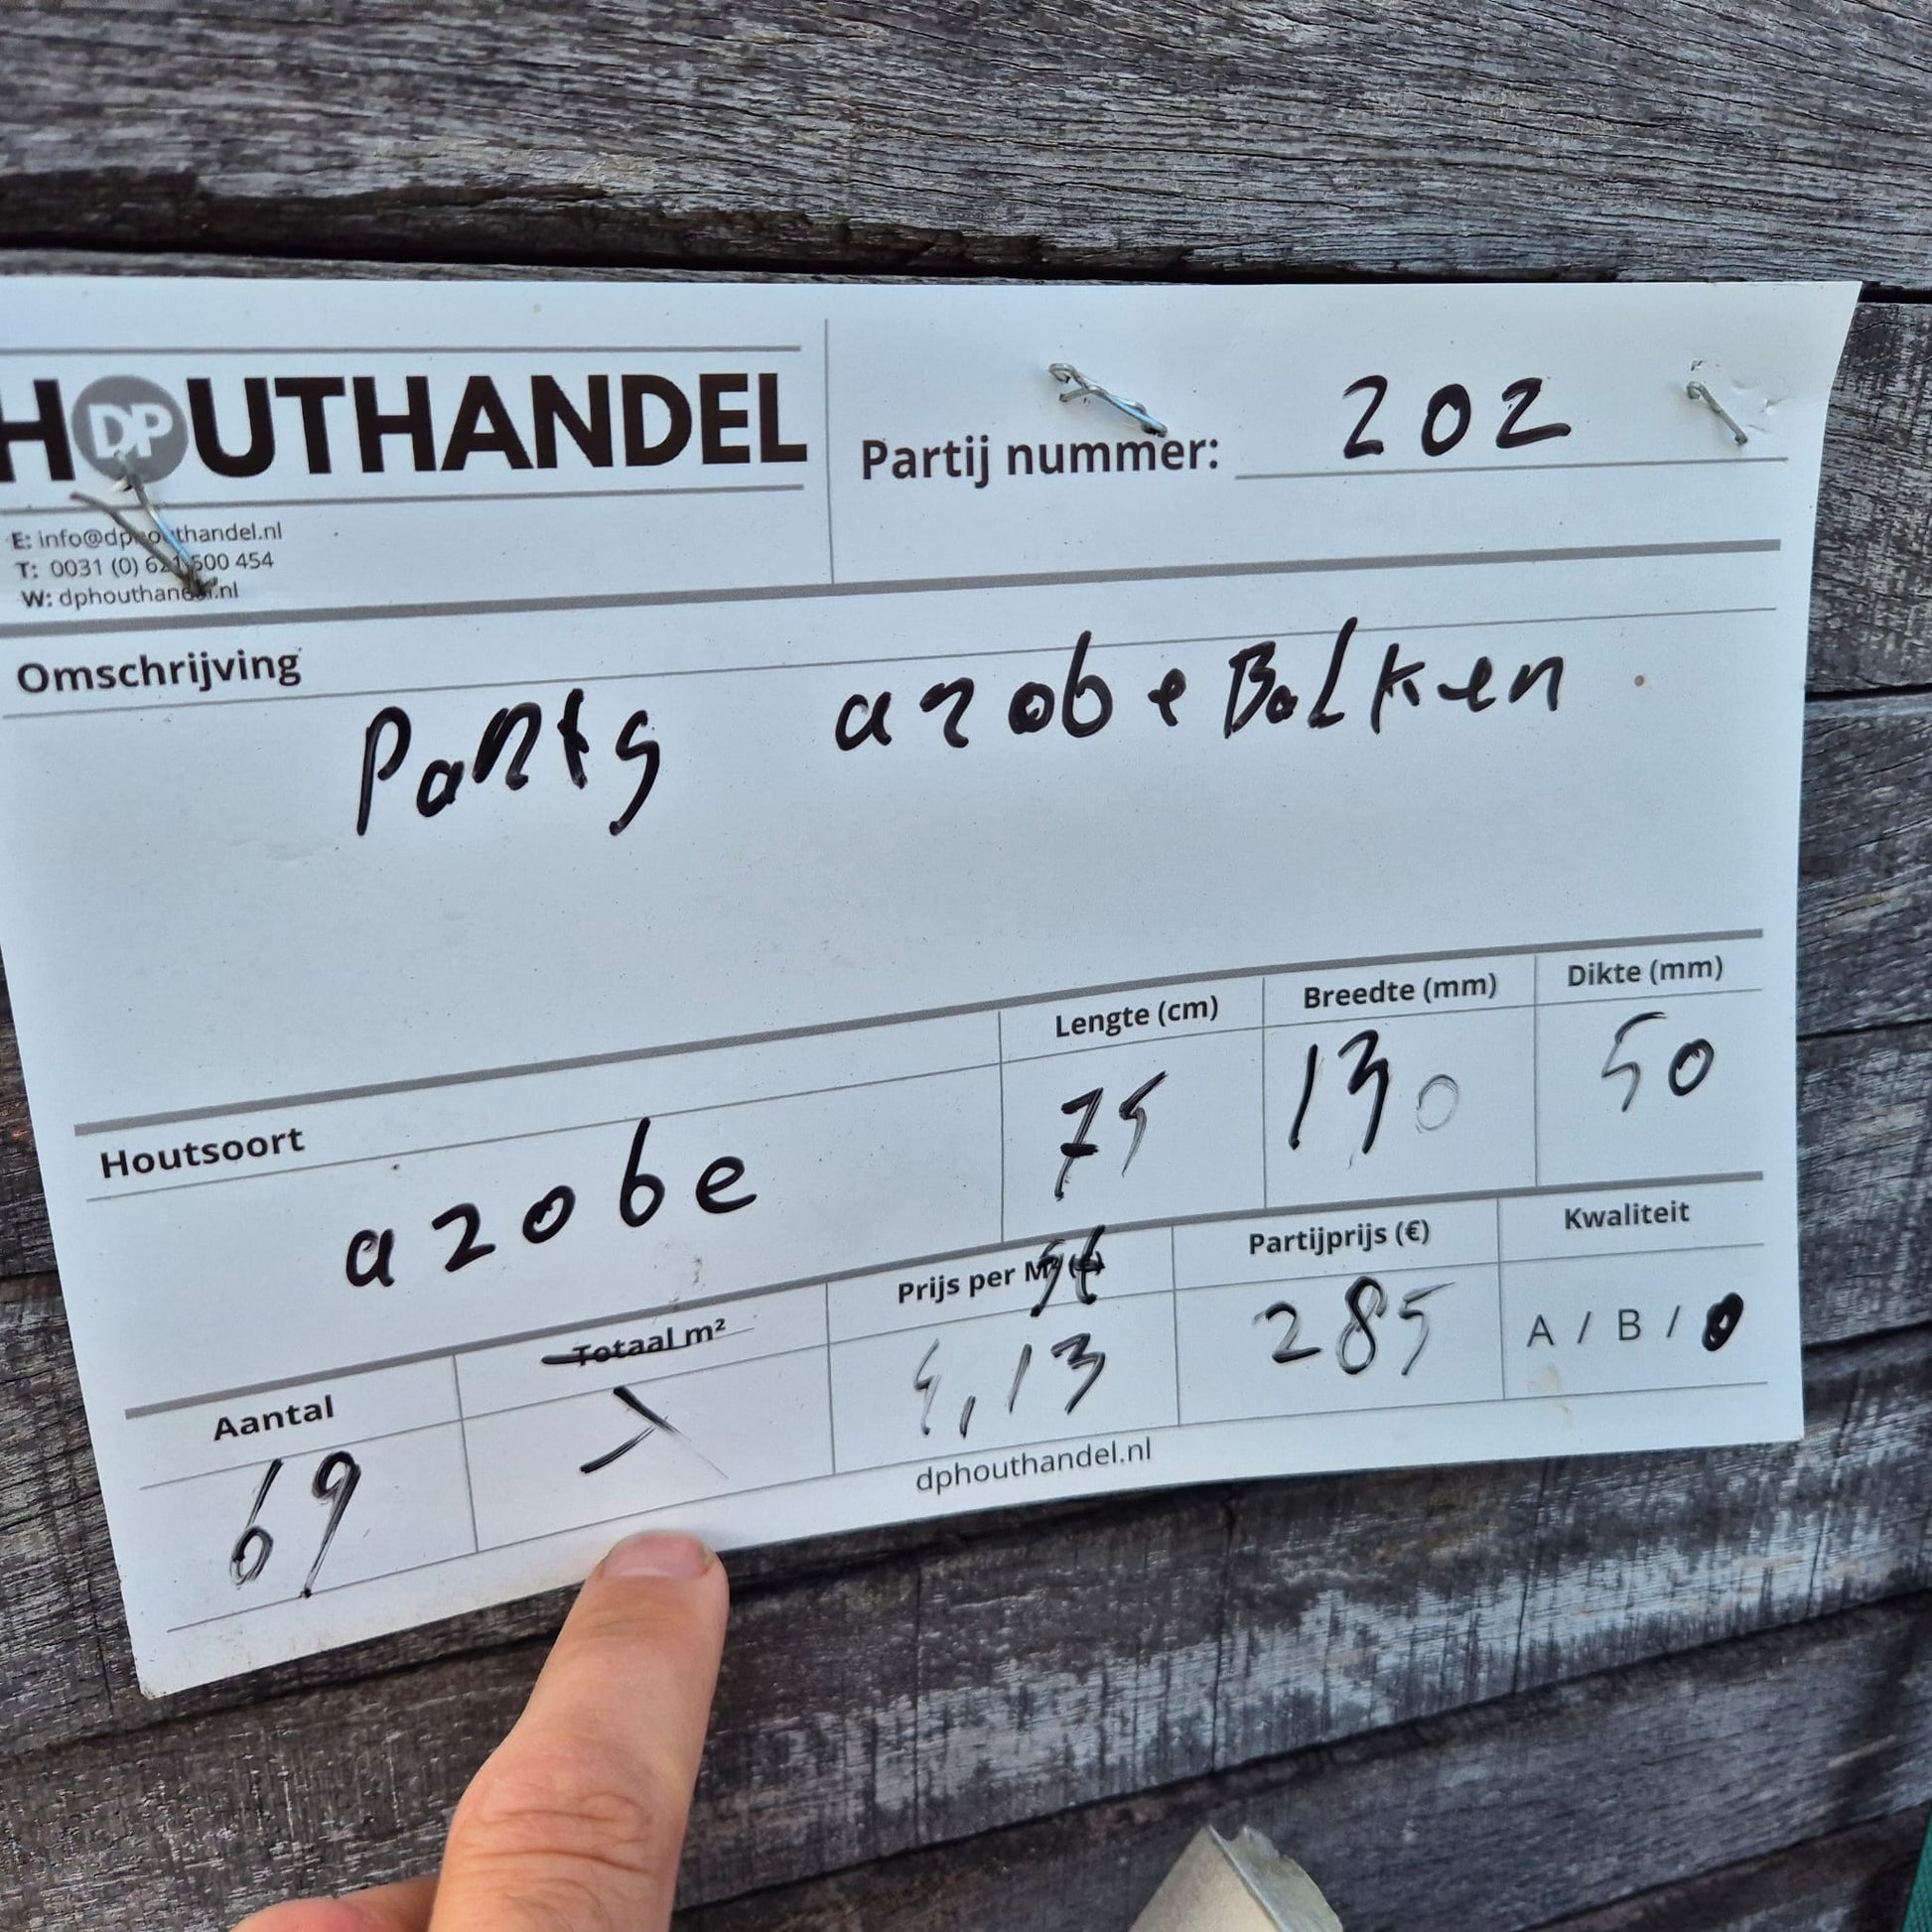 HOUTHANDEL
DP
Partij nummer: 202
E: info@dphouthandel.nl
T: 0031 (0) 621 500 454
W: dphouthandel.nl
Omschrijving
Partij azobe Balken
Lengte (cm) Breedte (mm) Dikte (mm)
75 130 50
Houtsoort
azobe
Aantal Totaal m² Prijs per M² st Partijprijs (€) Kwaliteit
69 4,13 285 A / B /
dphouthandel.nl